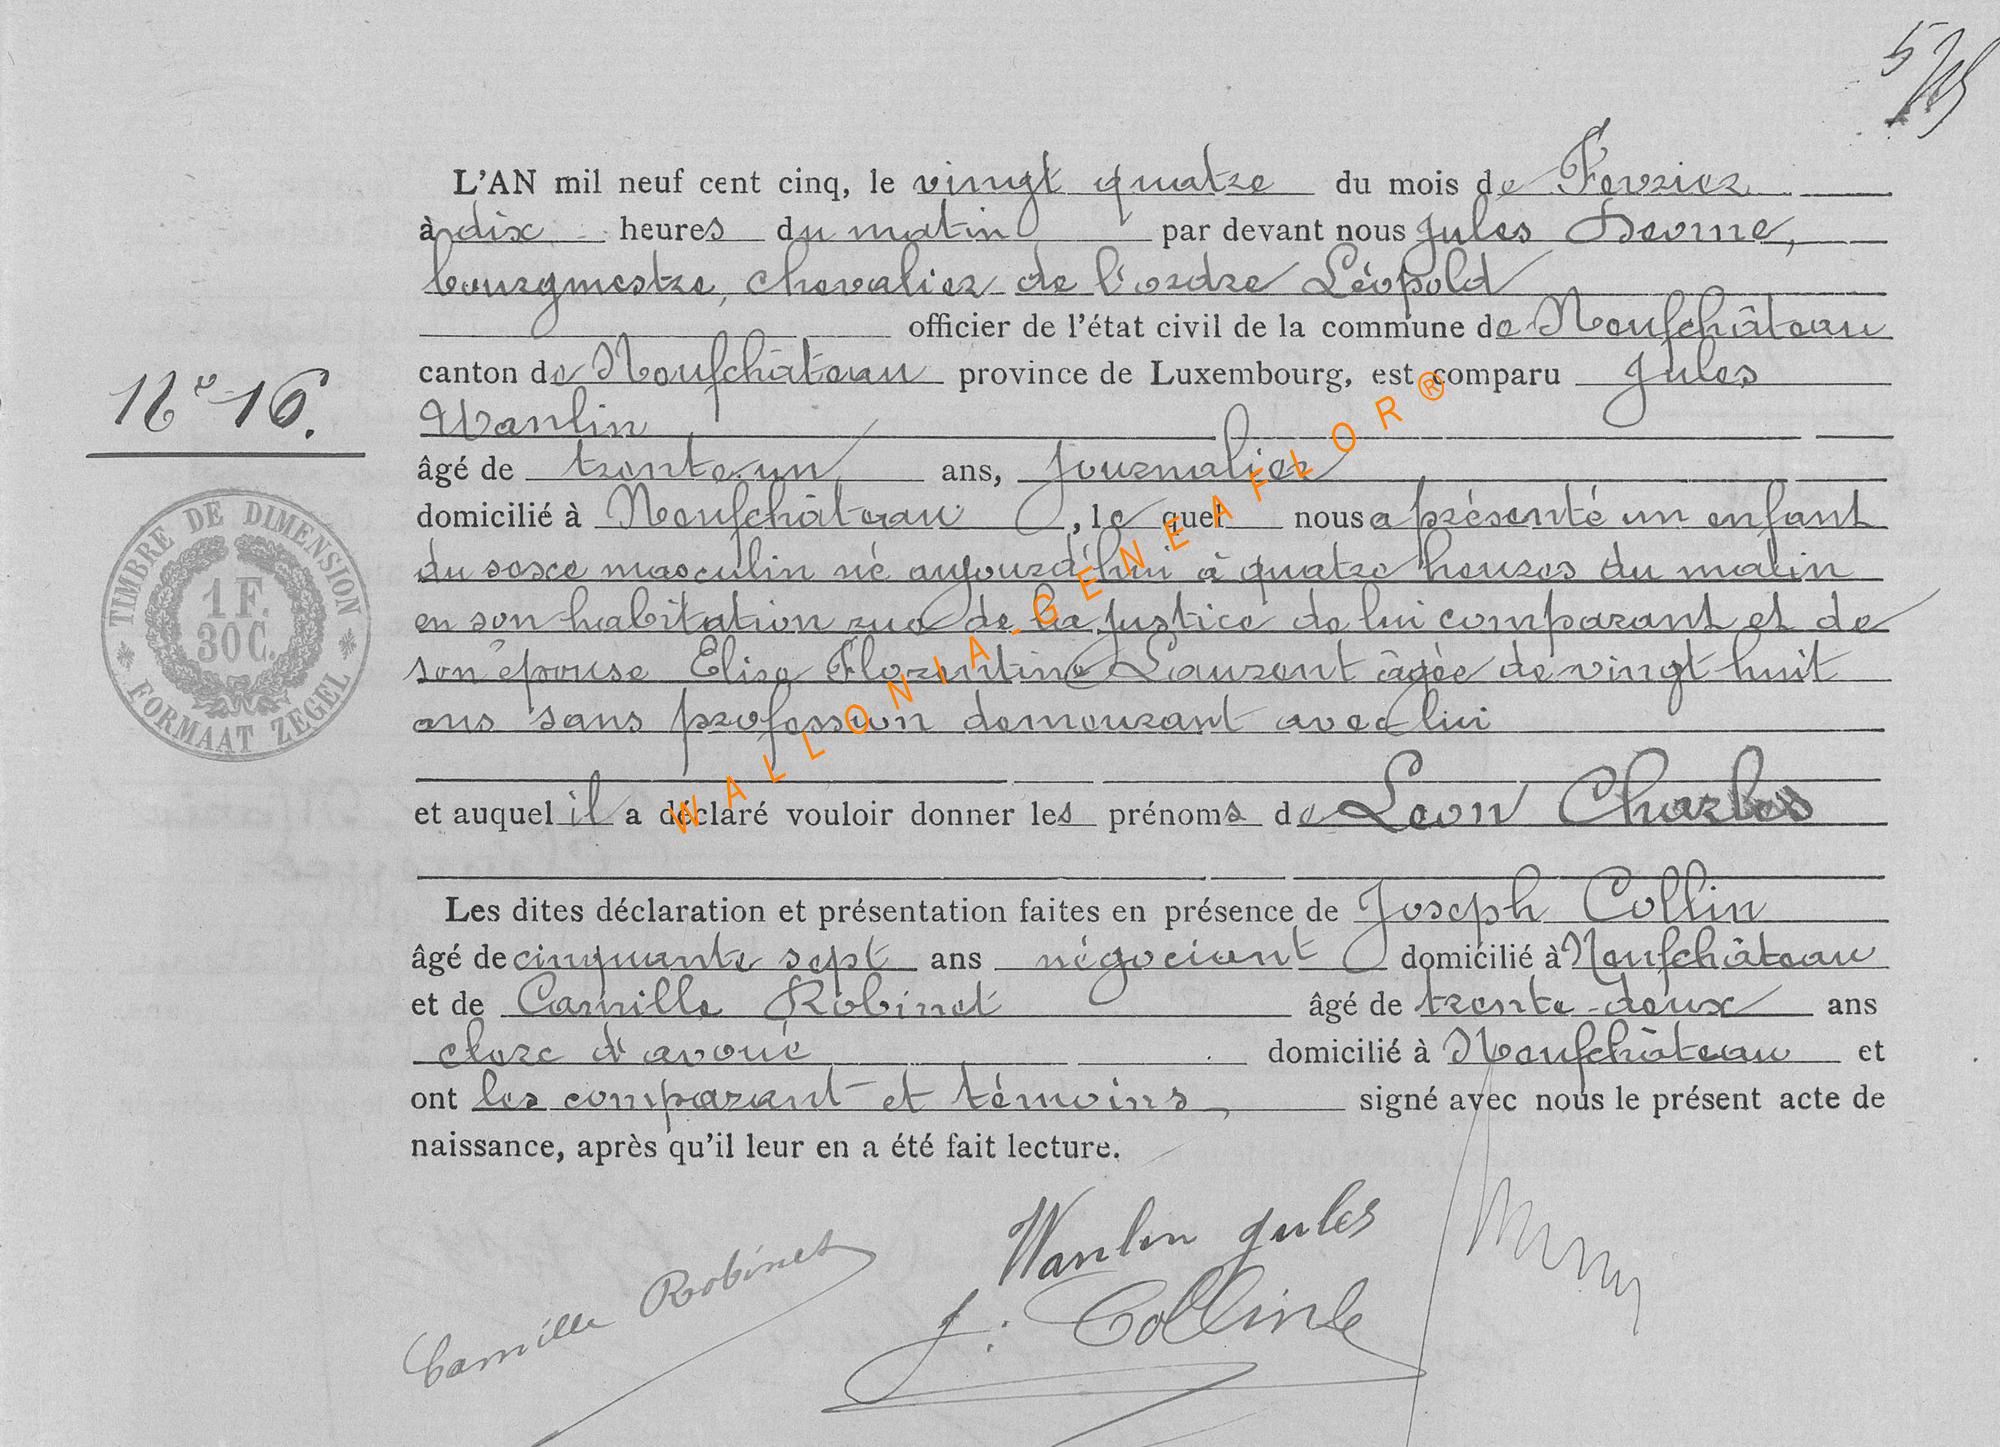 L'AN mil neuf cent cinq, le vingt quatre du mois de Fevrier
à dix heures du matin par devant nous Jules
bourgmestre, chevalier de l'ordre Léopold
officier de l'état civil de la commune de Neufchâteau
canton de Neufchâteau province de Luxembourg, est comparu Jules
Wanlin
N° 16.
âgé de trente un ans, journalier
domicilié à Neufchâteau, le quel nous a présenté un enfant
du sexe masculin né aujourd'hui à quatre heures du matin
en son habitation rue de la justice de lui comparant et de
son épouse Elise Florentine Laurent âgée de vingt huit
ans sans profession demeurant avec lui
et auquel il a déclaré vouloir donner les prénoms de Leon Charles
Les dites déclaration et présentation faites en présence de Joseph Collin
âgé de cinquante sept ans négociant domicilié à Neufchâteau
et de Camille Robinet âgé de trente-deux ans
clerc d'avoué domicilié à Neufchâteau et
ont les comparant et témoins, signé avec nous le présent acte de
naissance, après qu'il leur en a été fait lecture.
TIMBRE DE DIMENSION
1 F.
30 C.
FORMAAT ZEGEL
WALLONIA-GÉNÉAFLOR®
Wanlin Jules
Camille Robinet
J. Collin